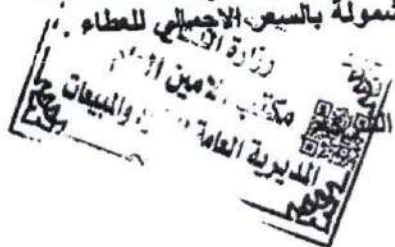 شمولة بالسعر الاجمالي للعطاء .
وزارة
مكتب الامين
المديرية العامة والمبيعات